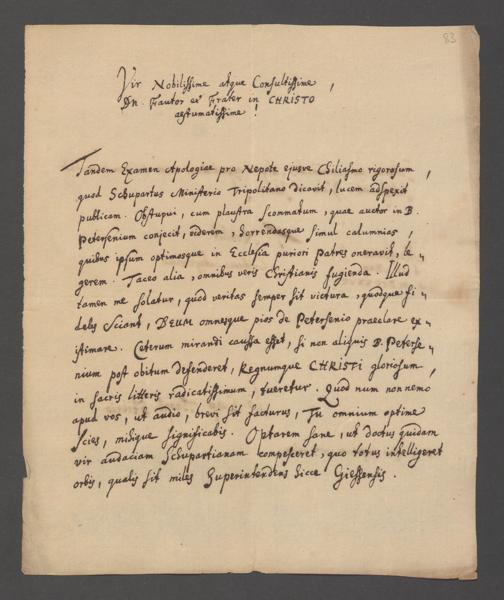 83
Vir Nobilissime atque Consultissime,
Dn. Fautor et Frater in CHRISTO
aestumatissime!
Tandem Examen Apologiae pro Nepote ejusve Chiliasmo rigorosum,
quod Schupartus Ministerio Tripolitano dicavit, lucem adspexit
publicam. Obstupui, cum plaustra scommatum, quae auctor in B.
Petersenium conjecit, viderem, horrendasque simul calumnias,
quibus ipsum optimosque in Ecclesia puriori Patres oneravit, le-
gerem. Taceo alia, omnibus veris Christianis fugienda. Illud
tamen me solatur, quod veritas semper sit victura, quodque fi-
deles sciant, DEUM omnesque pios de Petersenio praeclare ex-
istimare. Ceterum mirandi caussa esset, si non aliquis B. Peterse-
nium post obitum defenderet, Regnumque CHRISTI gloriosum,
in sacris litteris radicatissimum, tueretur. Quod num nonnemo
apud vos, ut audio, brevi sit facturus, Tu omnium optime
scies, mihique significabis. Optarem sane, ut doctus quidam
vir audaciam Schupartianam compesceret, quo totus intelligeret
orbis, qualis sit miles Superintendens hicce Giessensis.